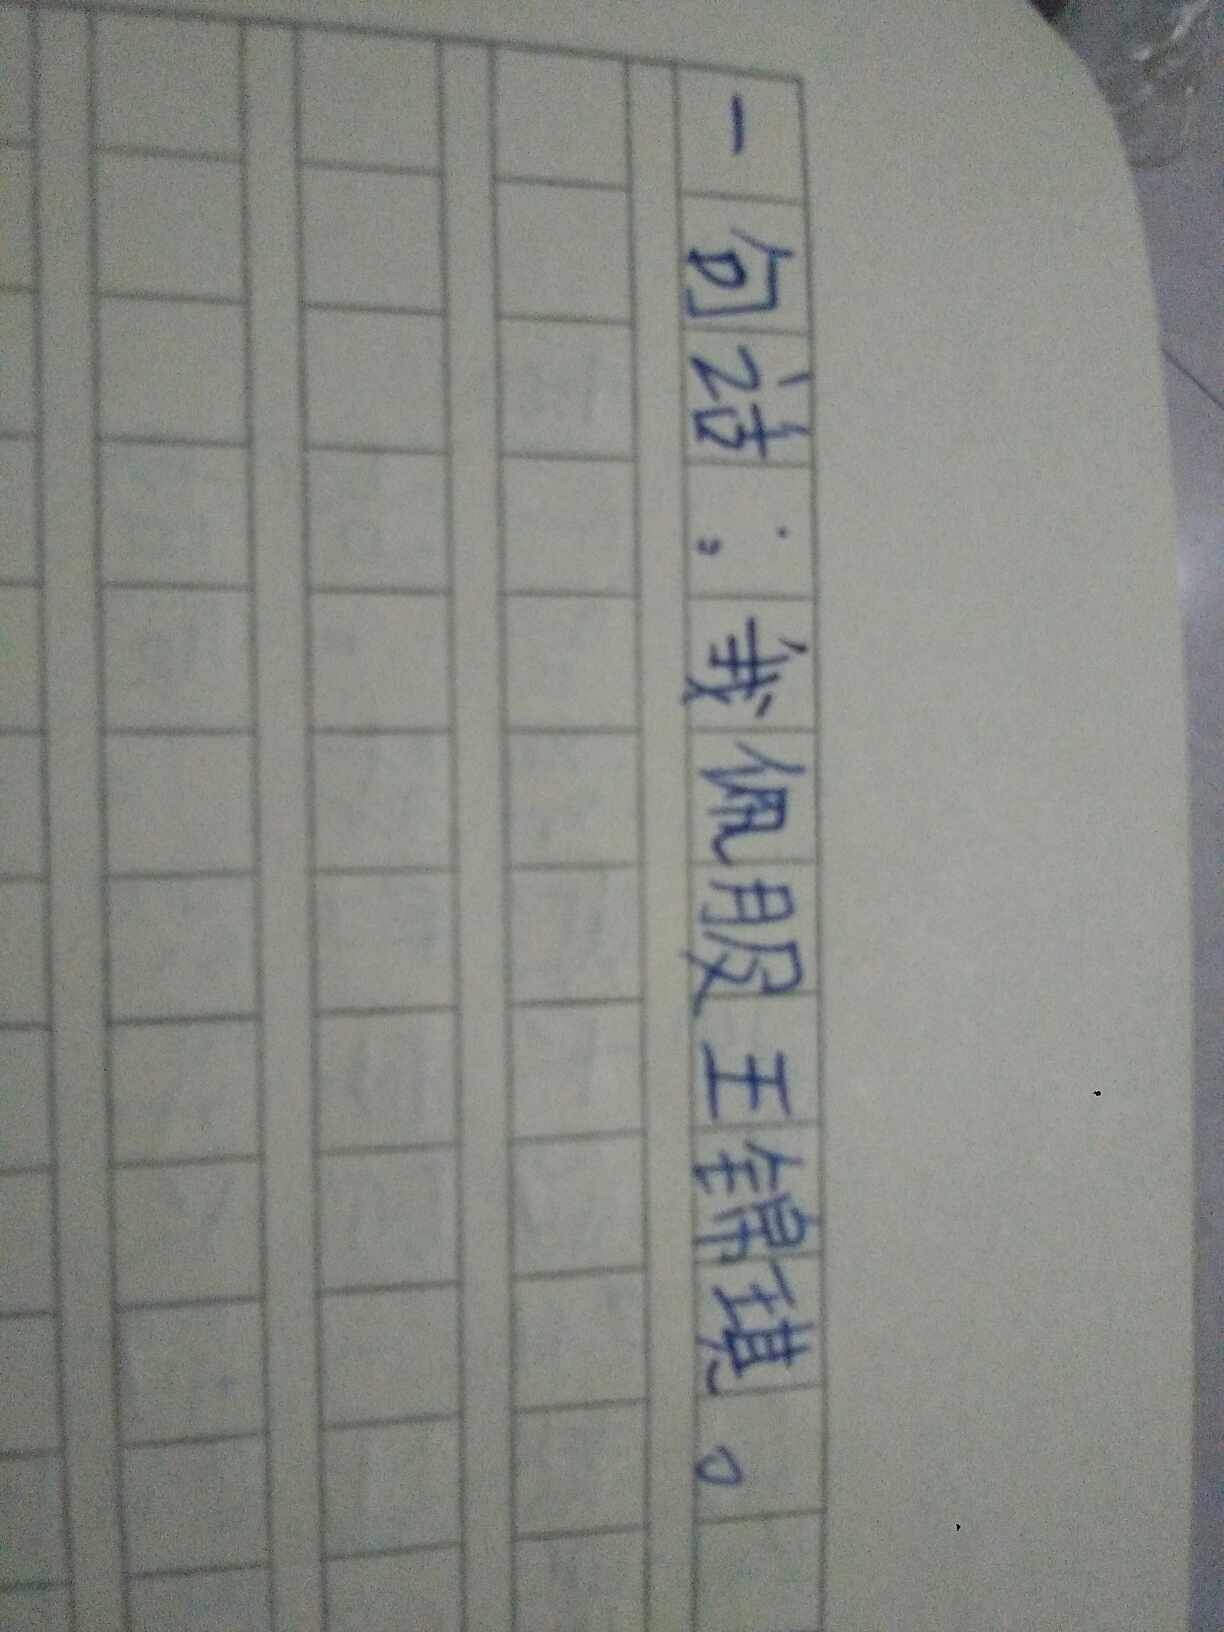 一句话：我佩服王锦琪。